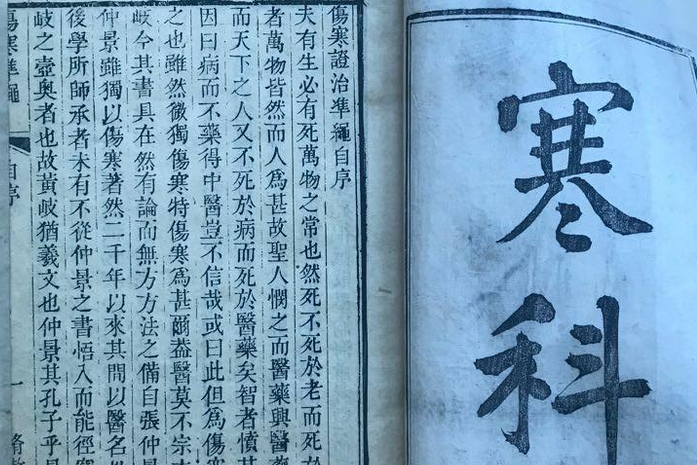 寒科
傷寒證治準繩自序
夫有生必有死萬物之常也然死不死於老而死
者萬物皆然而人爲甚故聖人憫之而醫藥興醫
而天下之人又不死於病而死於醫藥矣智者憤
因曰病而不藥得中醫豈不信哉或曰此但爲傷
之也雖然微獨傷寒特傷寒爲甚爾葢醫莫不宗
岐今其書具在然有論而無方方法之備自張仲
仲景雖獨以傷寒著然二千年以來其間以醫名
後學所師承者未有不從仲景之書悟入而能徑
岐之壼奧者也故黃岐猶羲文也仲景其孔子乎
傷寒準繩
自序
一